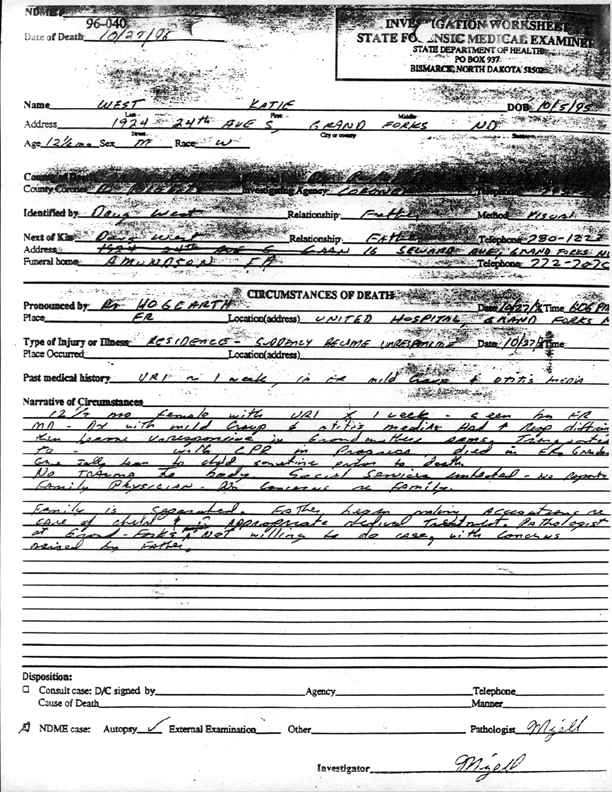 NDME# 96-040
Date of Death: 10/27/96
INVESTIGATION WORKSHEET
STATE FORENSIC MEDICAL EXAMINER
STATE DEPARTMENT OF HEALTH
PO BOX 937
BISMARCK, NORTH DAKOTA 58502
Name WEST KATIE DOB 10/5/95
Last First Middle
Address 1924 24th AVE S, GRAND FORKS ND
Street City or county
Age 12½ mo Sex M Race W
County Coroner Investigating Agency CORONER
Identified by Doug West Relationship Father Method Visual
Next of Kin Doug West Relationship FATHER Telephone 780-1222
Address 1924 24th AVE S 16 SEWARD AVE, GRAND FORKS
Funeral home AMUNDSON Telephone 772-
CIRCUMSTANCES OF DEATH
Pronounced by Dr HOGGARTH Date 10/27/96 Time 606 PM
Place ER Location(address) UNITED HOSPITAL, GRAND FORKS
Type of Injury or Illness RESIDENCE - SUDDENLY BECAME UNRESPONSIVE Date 10/27/96 Time
Place Occurred Location(address)
Past medical history URI ~ 1 week, in ER mild Croup & otitis media
Narrative of Circumstances
12 ½ mo female with URI x 1 week - seen by ER
MD - Dx with mild Croup & otitis media. Had Resp
then became unresponsive in Grandmothers arms, Transported
to with CPR in Progress died in ER
Gave Jelly bean to child sometime prior to death.
No Trauma to body. Social Services contacted - no reports
Family Physician - No Concerns re Family.
Family is separated. Father began making accusations re
care of child & in appropriate medical Treatment. Pathologist
at Grand Forks Not willing to do case, with Concerns
raised by Father.
Disposition:
Consult case: D/C signed by Agency Telephone
Cause of Death Manner
NDME case: Autopsy ✓ External Examination Other Pathologist Mizell
Investigator Mizell